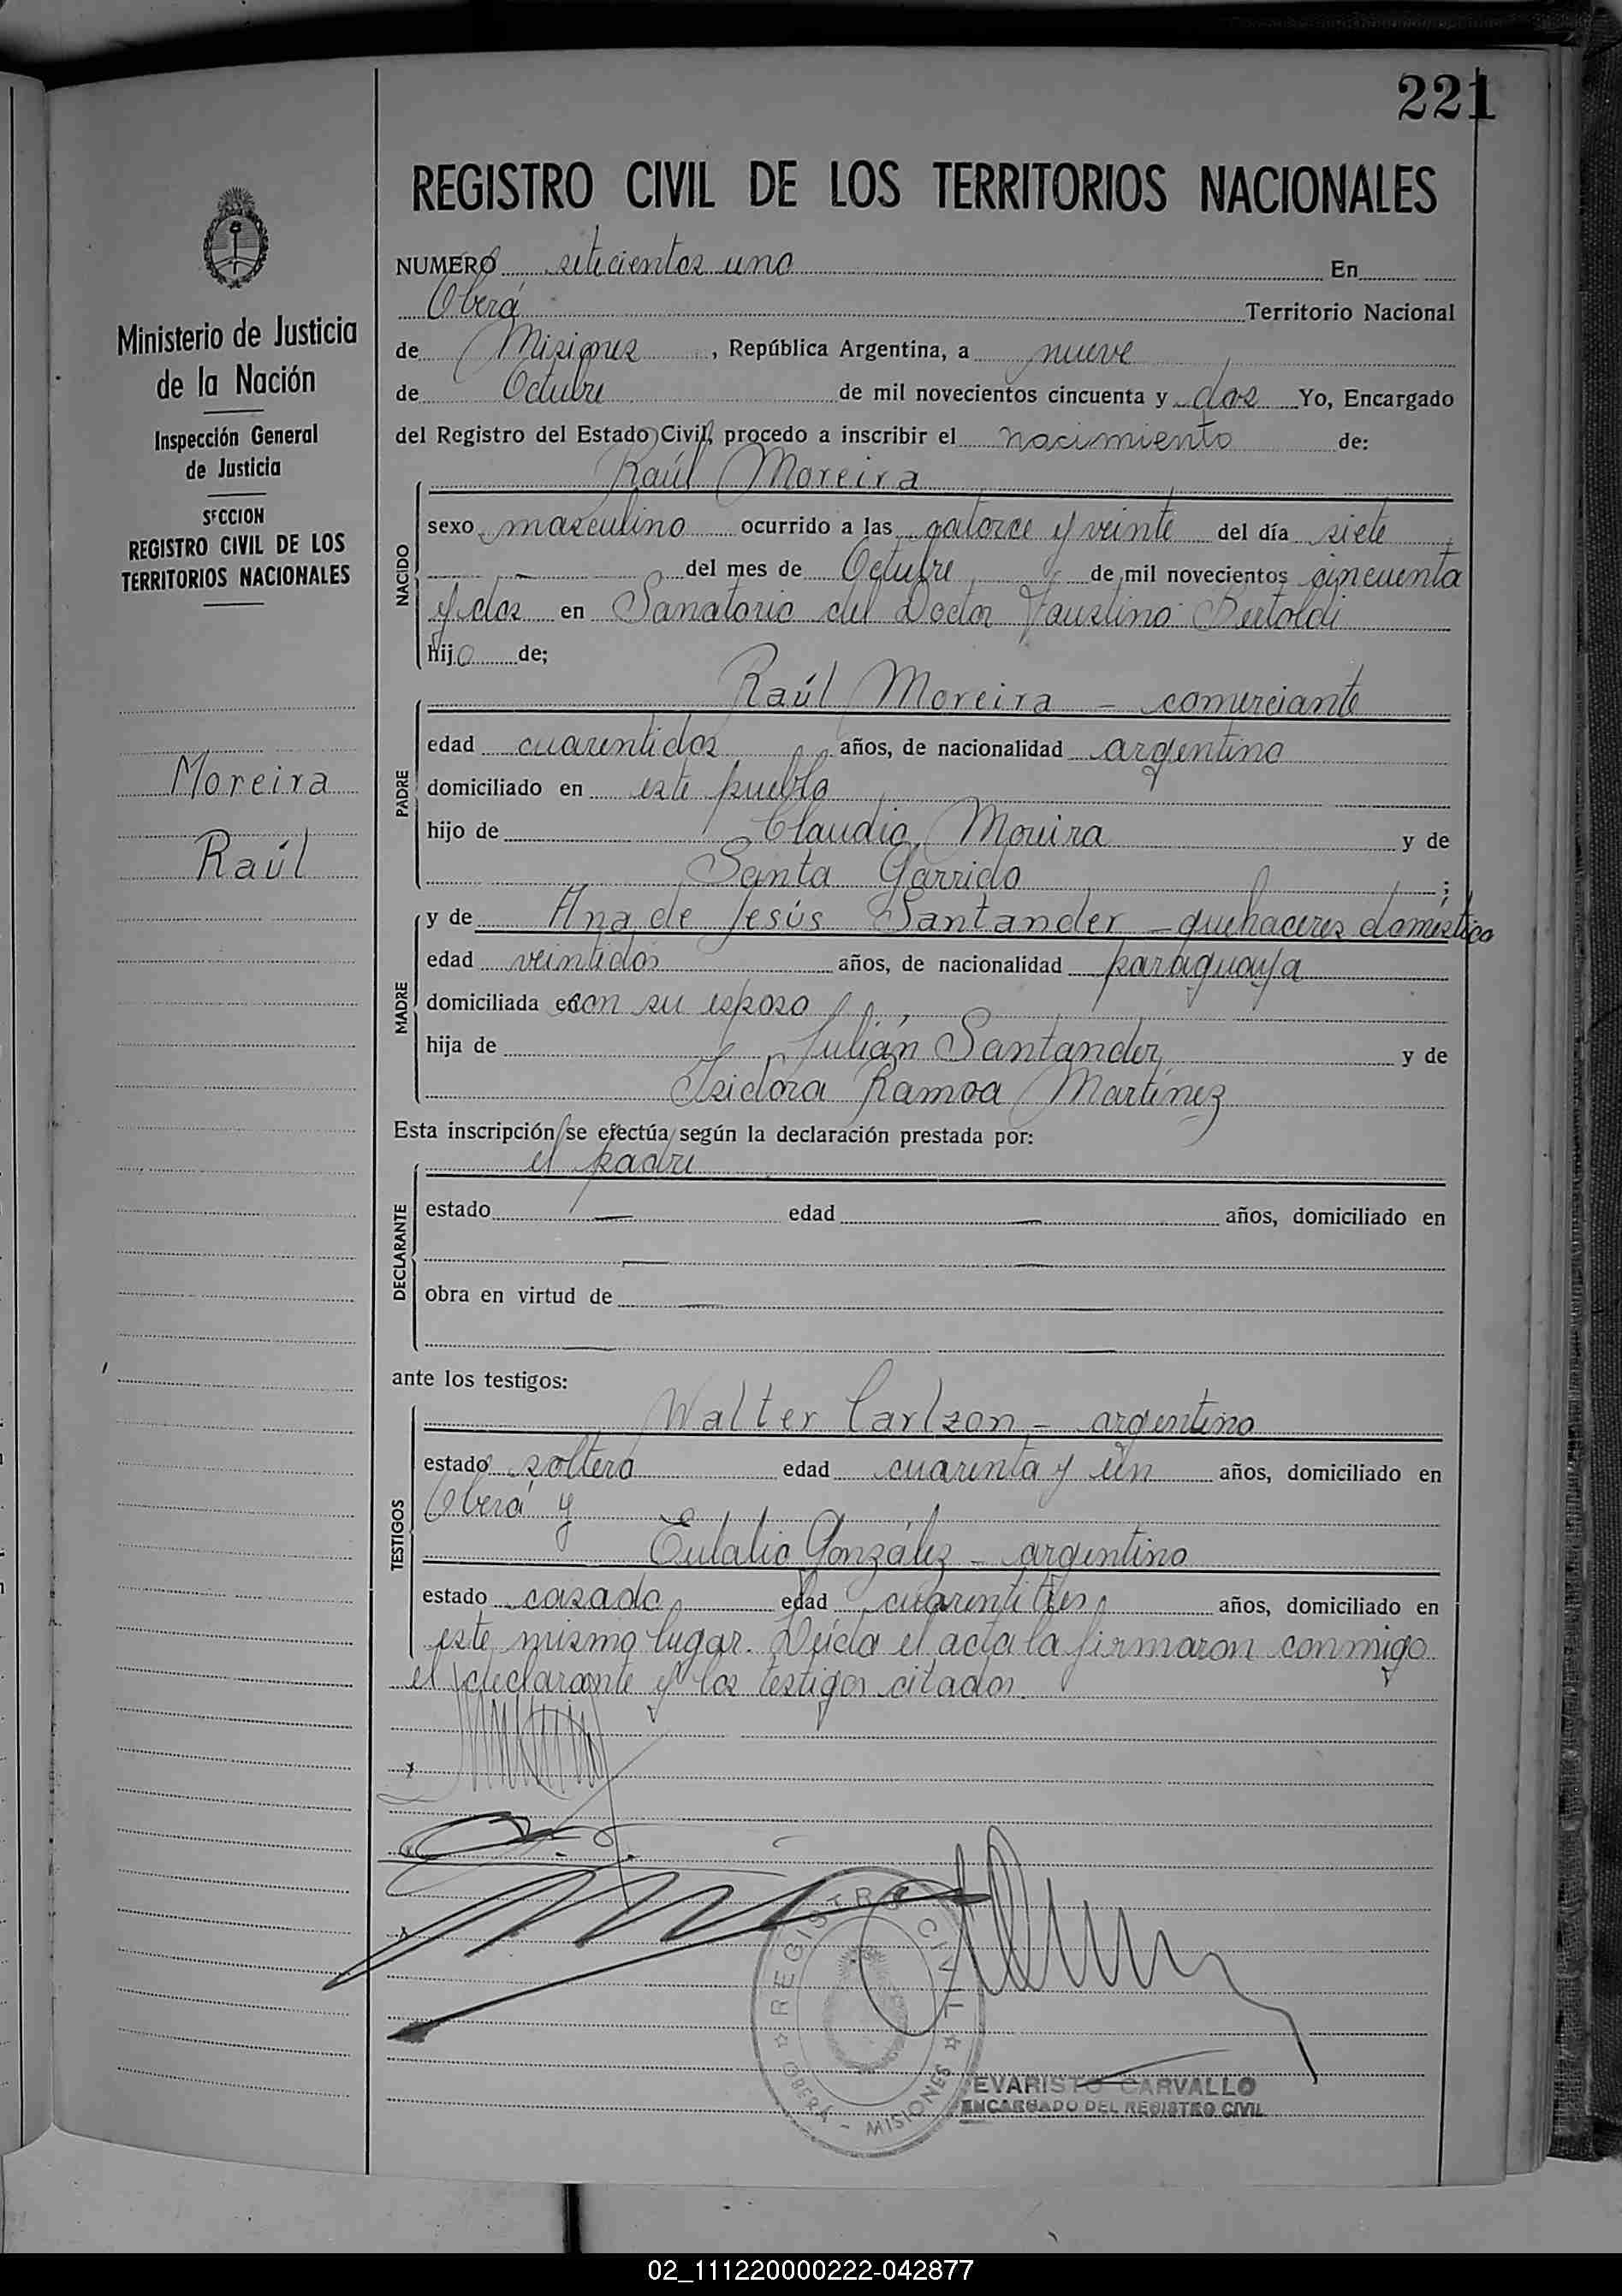 221
REGISTRO CIVIL DE LOS TERRITORIOS NACIONALES
Ministerio de Justicia
de la Nación
Inspección General
de Justicia
SECCION
REGISTRO CIVIL DE LOS
TERRITORIOS NACIONALES
Moreira
Raúl
NUMERO setecientos uno En
Oberá Territorio Nacional
de Misiones, República Argentina, a nueve
de Octubre de mil novecientos cincuenta y dos Yo, Encargado
del Registro del Estado Civil, procedo a inscribir el nacimiento de:
Raúl Moreira
NACIDO
sexo masculino ocurrido a las catorce y veinte del día siete
del mes de Octubre de mil novecientos cincuenta
y dos en Sanatorio del Doctor Faustino Bertoldi
hijo de;
Raúl Moreira - comerciante
PADRE
edad cuarentidos años, de nacionalidad argentino
domiciliado en este pueblo
hijo de Claudio Moreira y de
Santa Garrido;
MADRE
y de Ana de Jesús Santander - quehaceres doméstico
edad veintidos años, de nacionalidad paraguaya
domiciliada con su esposo
hija de Julián Santander y de
Isidora Ramoa Martínez
Esta inscripción se efectúa según la declaración prestada por:
el padre
DECLARANTE
estado — edad — años, domiciliado en
— —
obra en virtud de — —
— —
ante los testigos:
Walter Carlzon - argentino
TESTIGOS
estado soltero edad cuarenta y un años, domiciliado en
Oberá y
Eulalio González - argentino
estado casado edad cuarentitres años, domiciliado en
este mismo lugar. Leída el acta la firmaron conmigo
el declarante y los testigos citados.
REGISTRO CIVIL
OBERÁ - MISIONES
EVARISTO CARVALLO
ENCARGADO DEL REGISTRO CIVIL
02_111220000222-042877